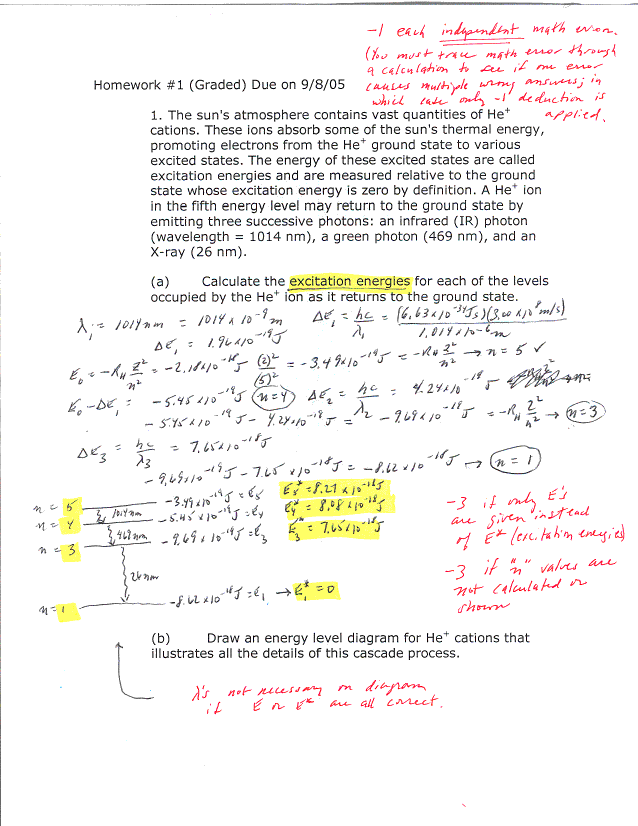 -1 each independent math error.
(You must trace math error through
a calculation to see if one error
causes multiple wrong answers; in
which case only -1 deduction is
applied.
Homework #1 (Graded) Due on 9/8/05
1. The sun's atmosphere contains vast quantities of He⁺
cations. These ions absorb some of the sun's thermal energy,
promoting electrons from the He⁺ ground state to various
excited states. The energy of these excited states are called
excitation energies and are measured relative to the ground
state whose excitation energy is zero by definition. A He⁺ ion
in the fifth energy level may return to the ground state by
emitting three successive photons: an infrared (IR) photon
(wavelength = 1014 nm), a green photon (469 nm), and an
X-ray (26 nm).
(a) Calculate the excitation energies for each of the levels
occupied by the He⁺ ion as it returns to the ground state.
λ₁ = 1014nm = 1014 x 10⁻⁹ m ΔE₁ = hc/λ₁ = (6.63x10⁻³⁴Js)(3.00x10⁸m/s)/1.014x10⁻⁶m
ΔE₁ = 1.96x10⁻¹⁹J
E₀ = -R_H Z²/n² = -2.18x10⁻¹⁸J (2)²/(5)² = -3.49x10⁻¹⁹J = -R_H Z²/n² → n = 5 ✓
E₀ - ΔE₁ = -5.45x10⁻¹⁹J (n=4) ΔE₂ = hc/λ₂ = 4.24x10⁻¹⁹J
-5.45x10⁻¹⁹J - 4.24x10⁻¹⁹J = -9.69x10⁻¹⁹J = -R_H Z²/n² → (n=3)
ΔE₃ = hc/λ₃ = 7.65x10⁻¹⁸J
-9.69x10⁻¹⁹J - 7.65x10⁻¹⁸J = -8.62x10⁻¹⁸J → (n=1)
n = 5 -3.49x10⁻¹⁹J = E₅ E₅* = 8.27x10⁻¹⁸J
1014nm
n = 4 -5.45x10⁻¹⁹J = E₄ E₄* = 8.08x10⁻¹⁸J
469nm
n = 3 -9.69x10⁻¹⁹J = E₃ E₃* = 7.65x10⁻¹⁸J
26nm
n = 1 -8.62x10⁻¹⁸J = E₁ → E₁* = 0
-3 if only E's
are given instead
of E* (excitation energies)
-3 if "n" values are
not calculated or
shown
(b) Draw an energy level diagram for He⁺ cations that
illustrates all the details of this cascade process.
λ's not necessary on diagram
if E or E* are all correct.